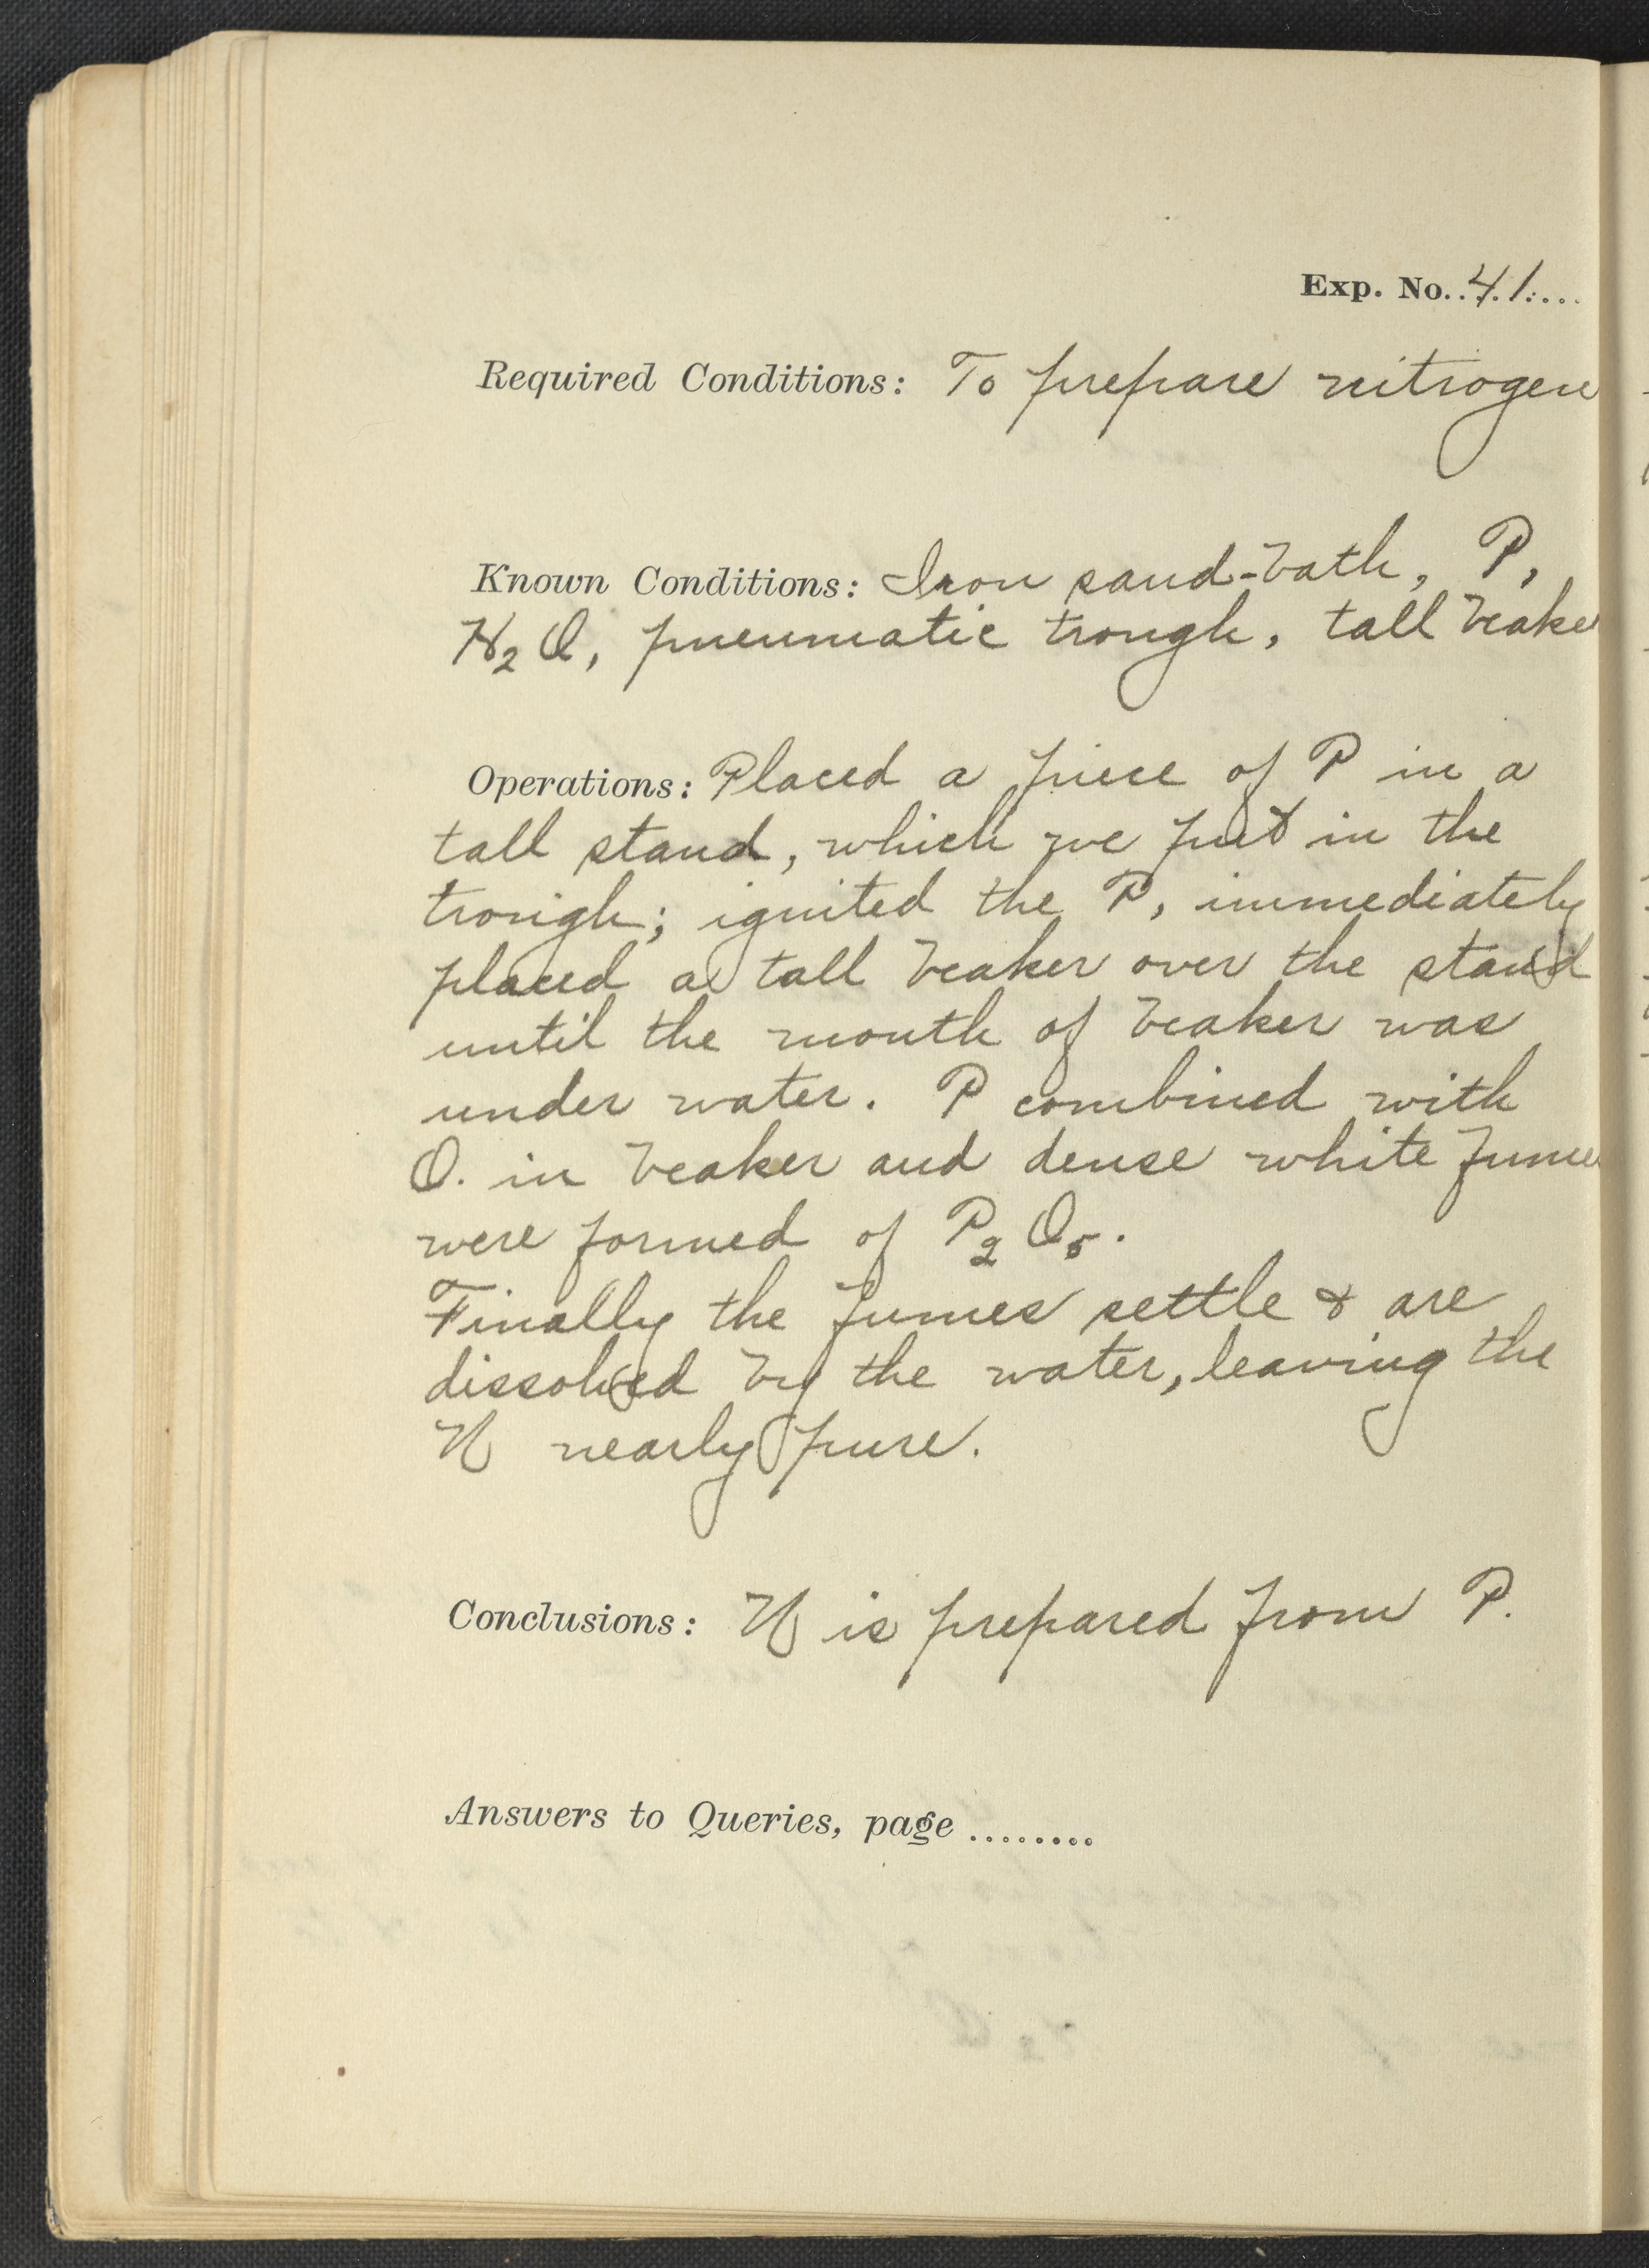 Exp. No. 41
Required Conditions: To prepare nitrogen
Known Conditions: Iron sand-bath, P,
H2O, pneumatic trough, tall beaker
Operations: Placed a piece of P in a
tall stand, which we put in the
trough; ignited the P, immediately
placed a tall beaker over the stand
until the mouth of beaker was
under water. P combined with
O. in beaker and dense white fumes
were formed of P2O5.
Finally the fumes settle & are
dissolved by the water, leaving the
N nearly pure.
Conclusions: N is prepared from P.
Answers to Queries, page ........